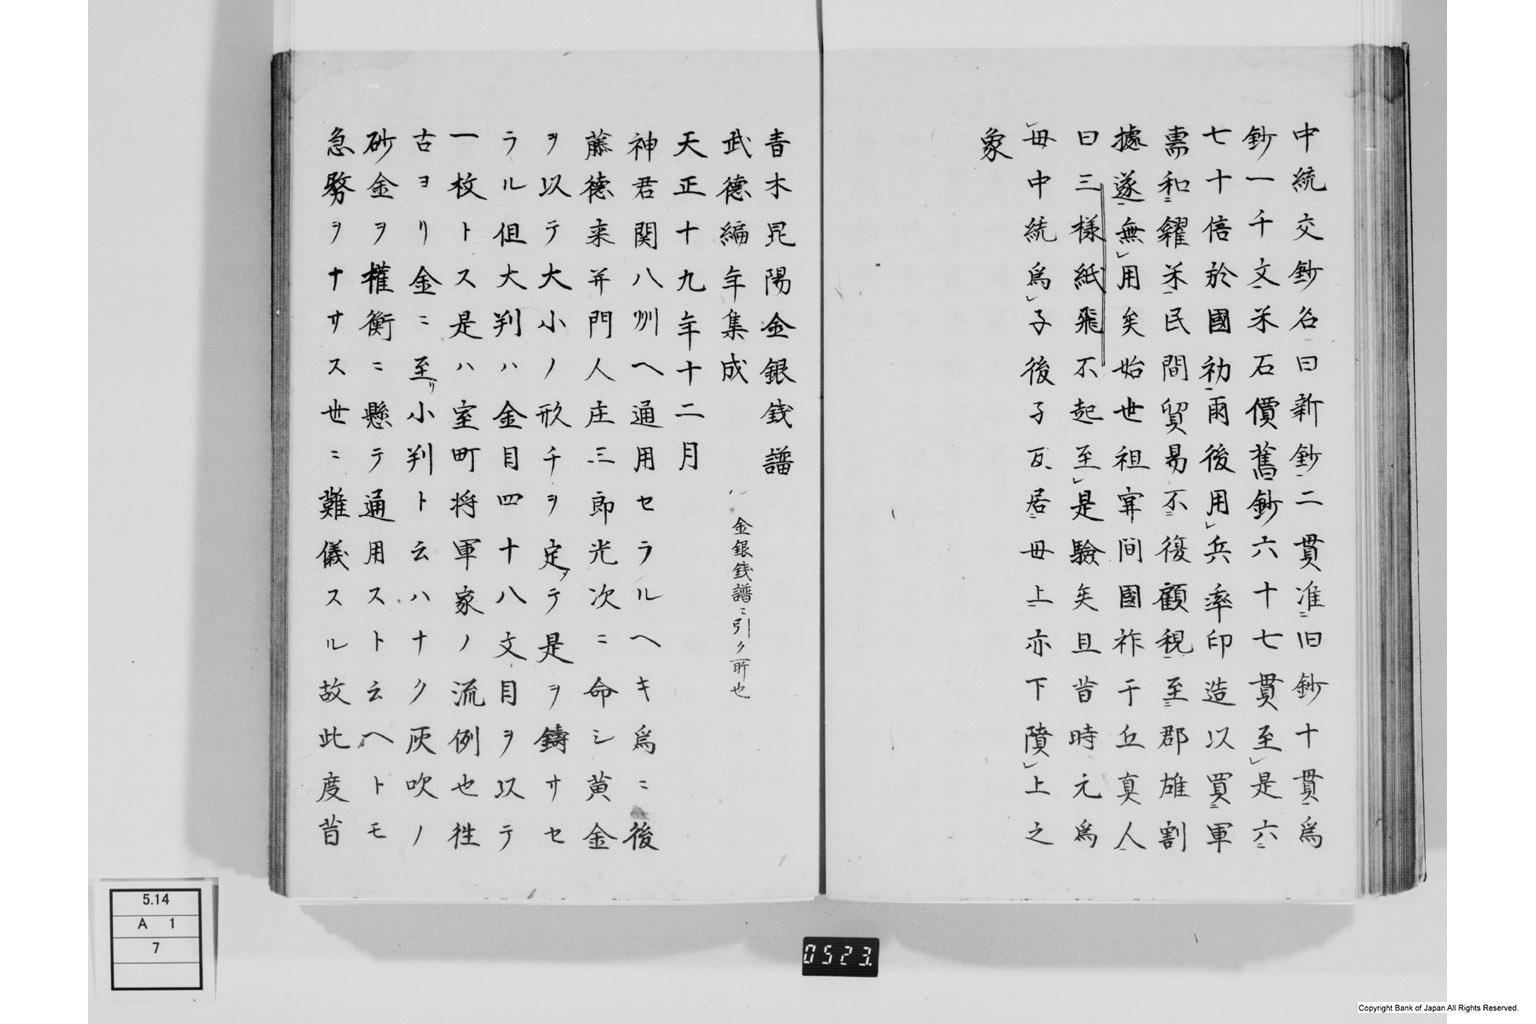 中統交鈔名曰新鈔二貫准ニ旧鈔十貫為
鈔一千文米石價舊鈔六十七貫至是六ニ
七十倍於國初雨後用兵率印造以買ニ軍
需和ニ糴米民間貿易不ニ復顧視至ニ郡雄割
據遂無用矣始世祖寧间國祚于丘真人
曰三様紙飛不起至是驗矣且昔時元為
毋中統為子後子瓦居毋上亦下隫上之
象
青木昆陽金銀銭譜
武德編年集成 金銀銭譜ニ引ク所也
天正十九年十二月
神君関八州ヘ通用セラルヘキ為ニ後
藤德来并門人庄三郎光次ニ命シ黄金
ヲ以テ大小ノ形チヲ定テ是ヲ鑄サセ
ラル但大判ハ金目四十八文目ヲ以テ
一枚トス是ハ室町将軍家ノ流例也往
古ヨリ金ニ至リ小判ト云ハナク灰吹ノ
砂金ヲ權衡ニ懸テ通用スト云ヘトモ
急務ヲナサス世ニ難儀スル故此度昔
5.14
A 1
7
0523.
Copyright Bank of Japan All Rights Reserved.